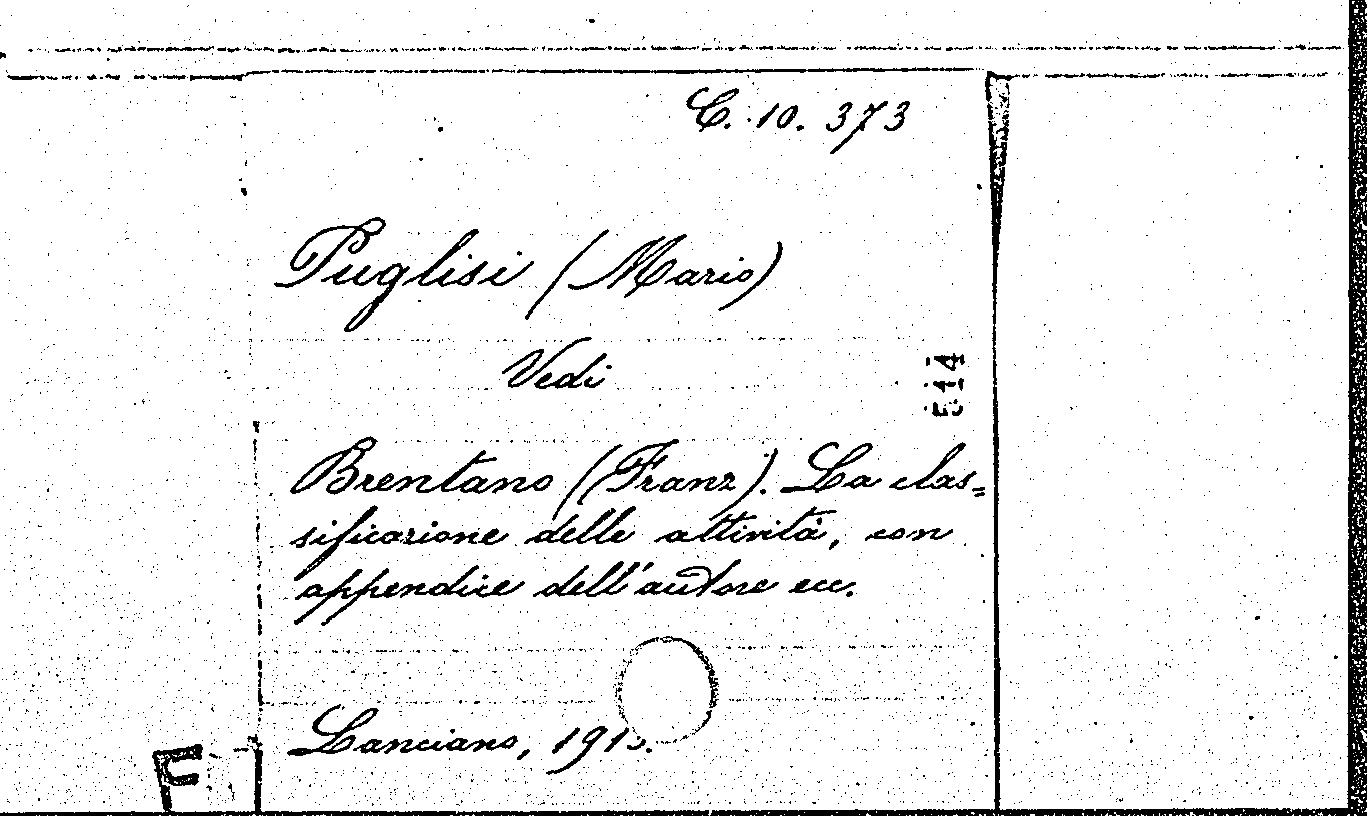 C. 10. 373
Puglisi (Mario)
Vedi
514
Brentano (Franz). La clas=
sificazione delle attività, con
appendice dell'autore ecc.
Lanciano,